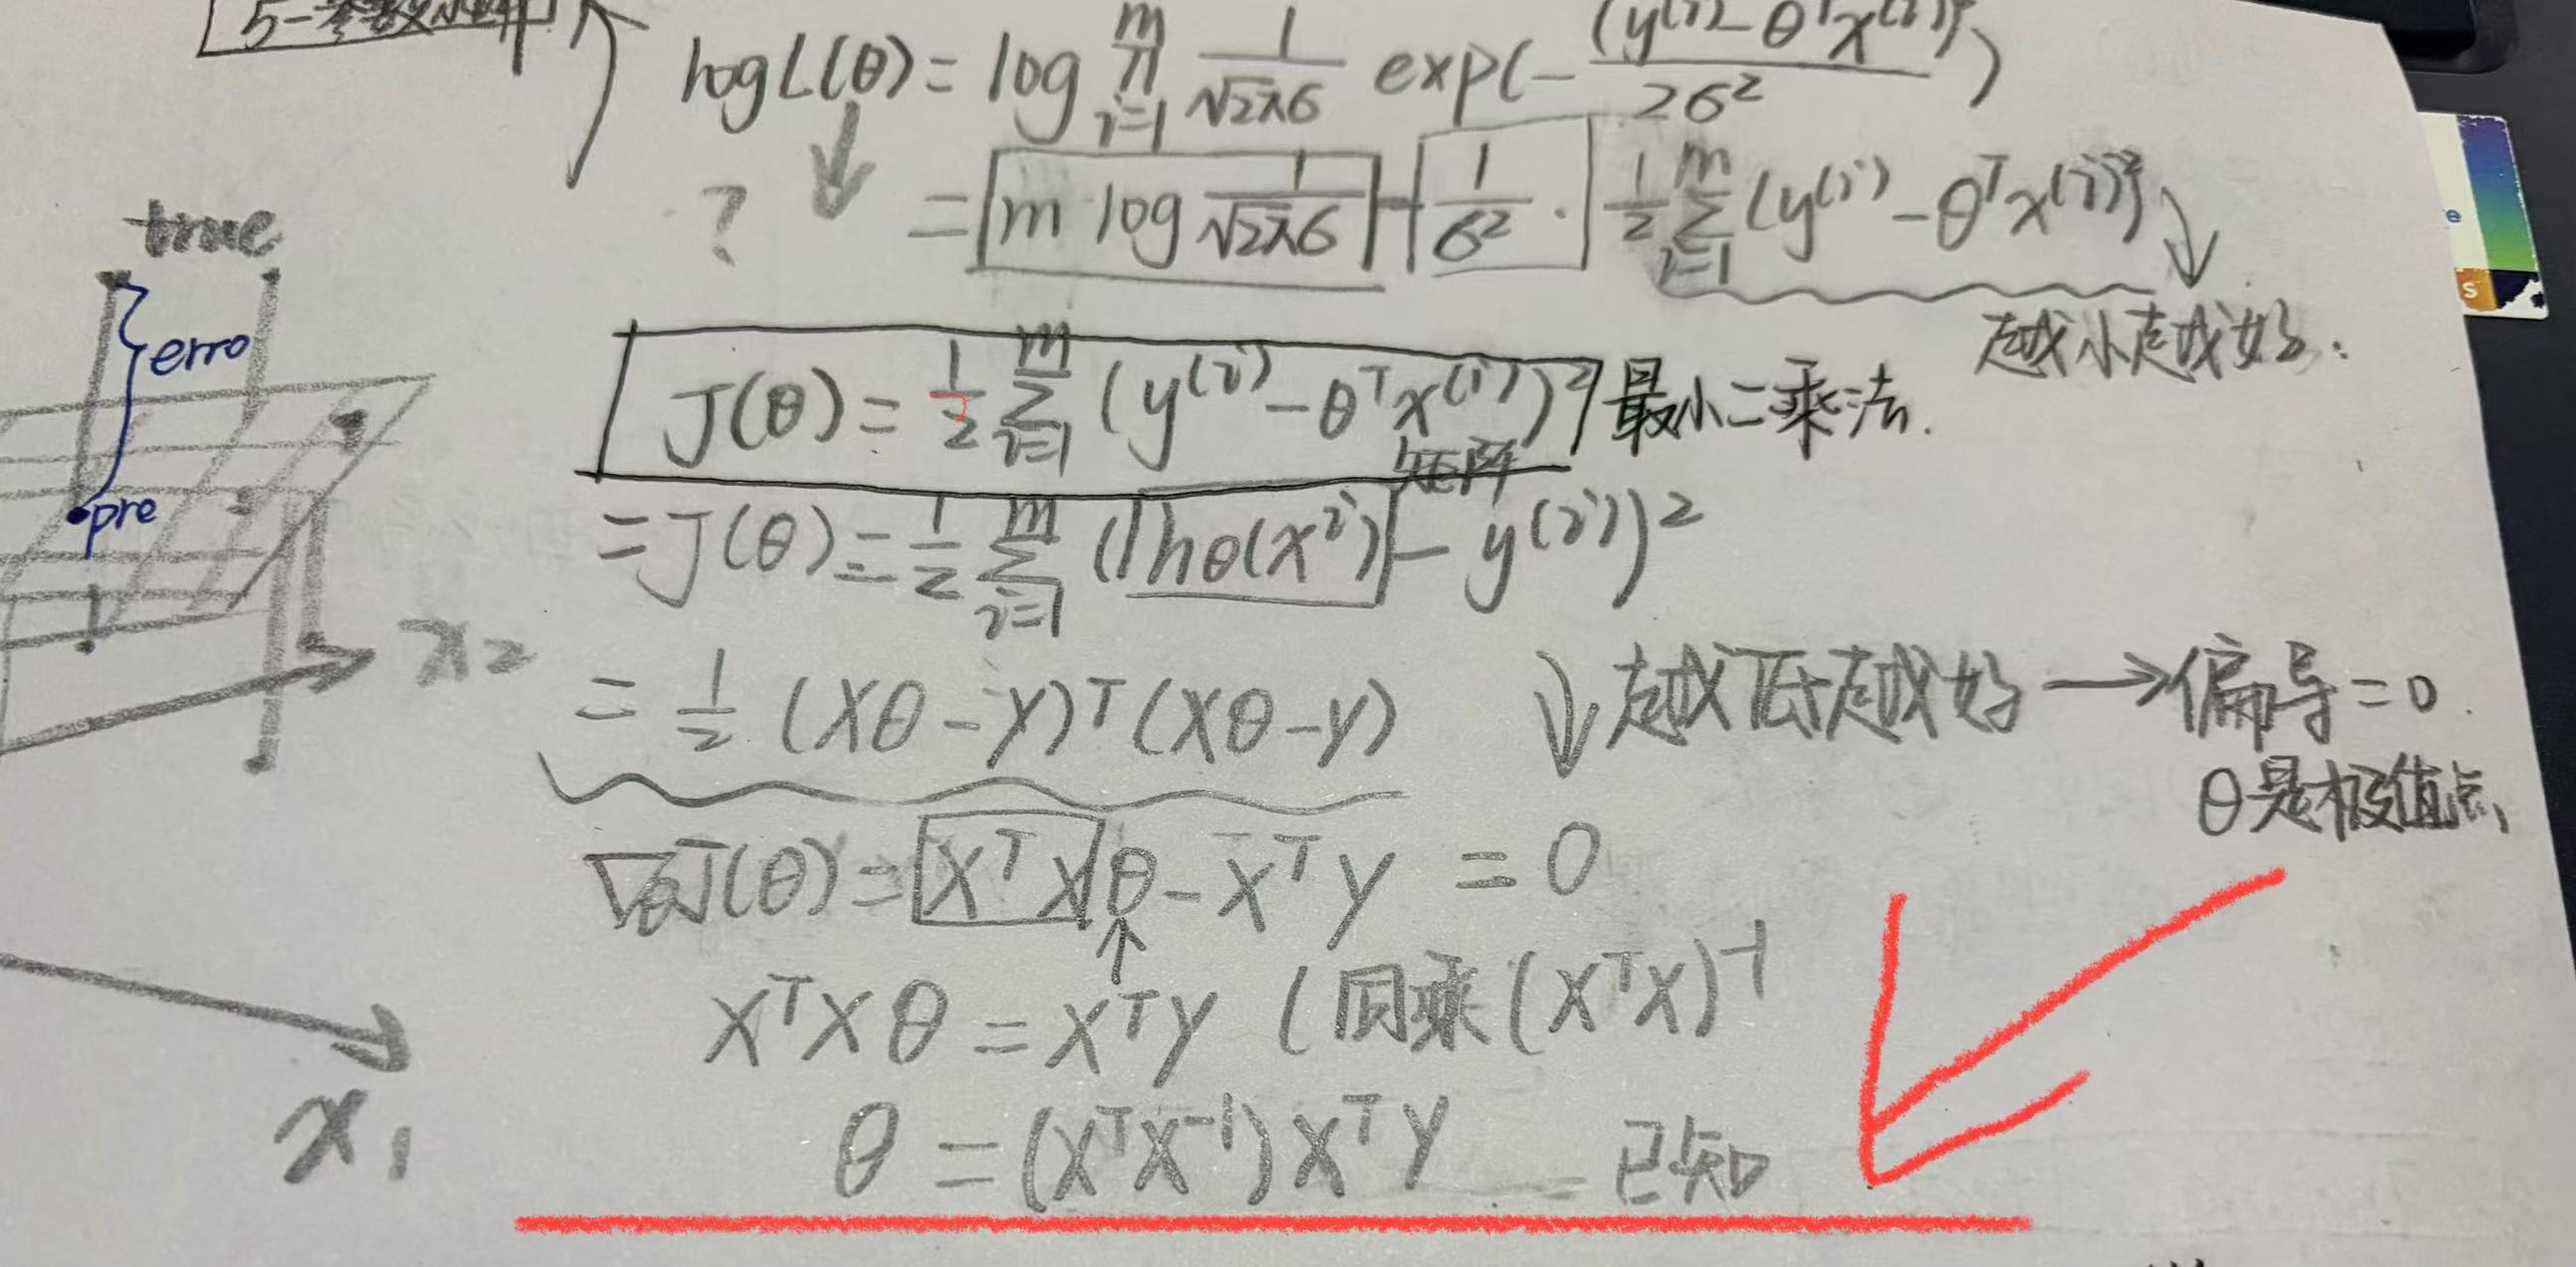 log L(θ) = log ∏_{i=1}^{m} 1/(√2πσ) exp(- (y^(i) - θ^T x^(i))²/2σ²)
? = m log 1/(√2πσ) - 1/σ² · 1/2 ∑_{i=1}^{m} (y^(i) - θ^T x^(i))²
越小越好.
true
erro
pre
J(θ) = 1/2 ∑_{i=1}^{m} (y^(i) - θ^T x^(i))² 最小二乘法.
矩阵
= J(θ) = 1/2 ∑_{i=1}^{m} (hθ(x^i) - y^(i))²
x2
= 1/2 (Xθ - y)^T (Xθ - y) ↓越低越好 → 偏导 = 0.
θ是极值点
∇θJ(θ) = X^T X θ - X^T y = 0
X^T X θ = X^T y (同乘 (X^T X)^-1
θ = (X^T X^-1) X^T y 已知
x1